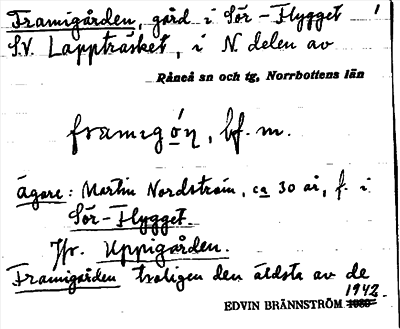 Framigården, gård i Sör-Flygget 1
S.V. Lappträsket, i N. delen av
Råneå sn och tg, Norrbottens län
framigọ́n, bf. m.
ägare: Martin Nordström, ca 30 år, f. i
Sör-Flygget.
Jfr. Uppigården.
Framigården troligen den äldsta av de
1942.
EDVIN BRÄNNSTRÖM